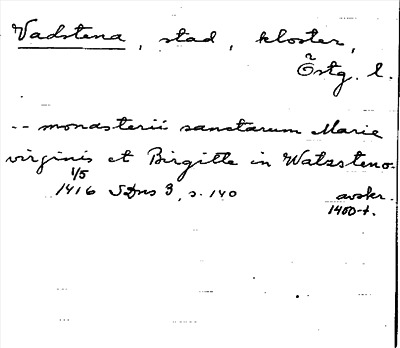 Vadstena, stad, kloster,
Östg. l.
-- monasterii sanctarum Marie
virginis et Birgitte in Watzsteno
1/5
1416 SDns 3, s. 140 avskr.
1400-t.